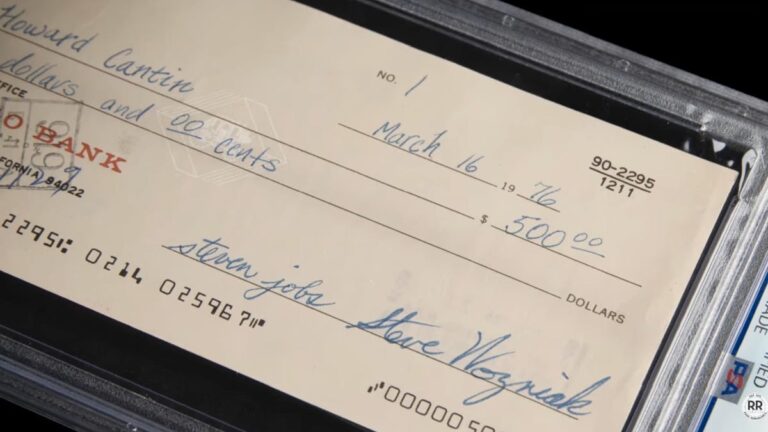 NO. 1
Howard Cantin
March 16 1976
90-2295
1211
$ 500 00
dollars and 00 cents
DOLLARS
O BANK
CALIFORNIA 94022
steven jobs Steve Wozniak
2295⑆ 0214 025967⑈
⑈000005
PSA
RR